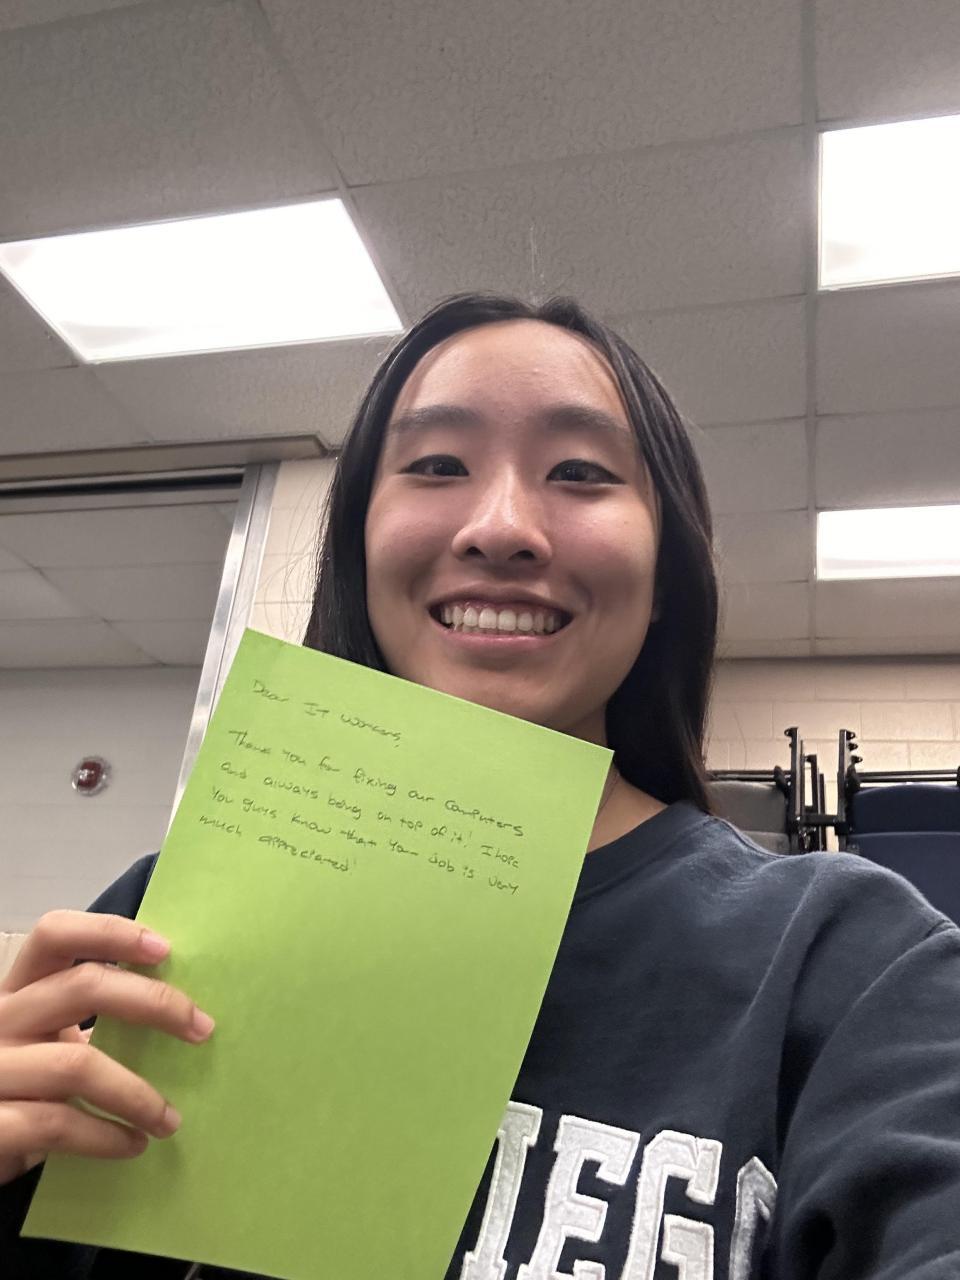 Dear IT workers,
Thank you for fixing our computers
and always being on top of it! I hope
you guys know that your job is very
much appreciated!
IEGO